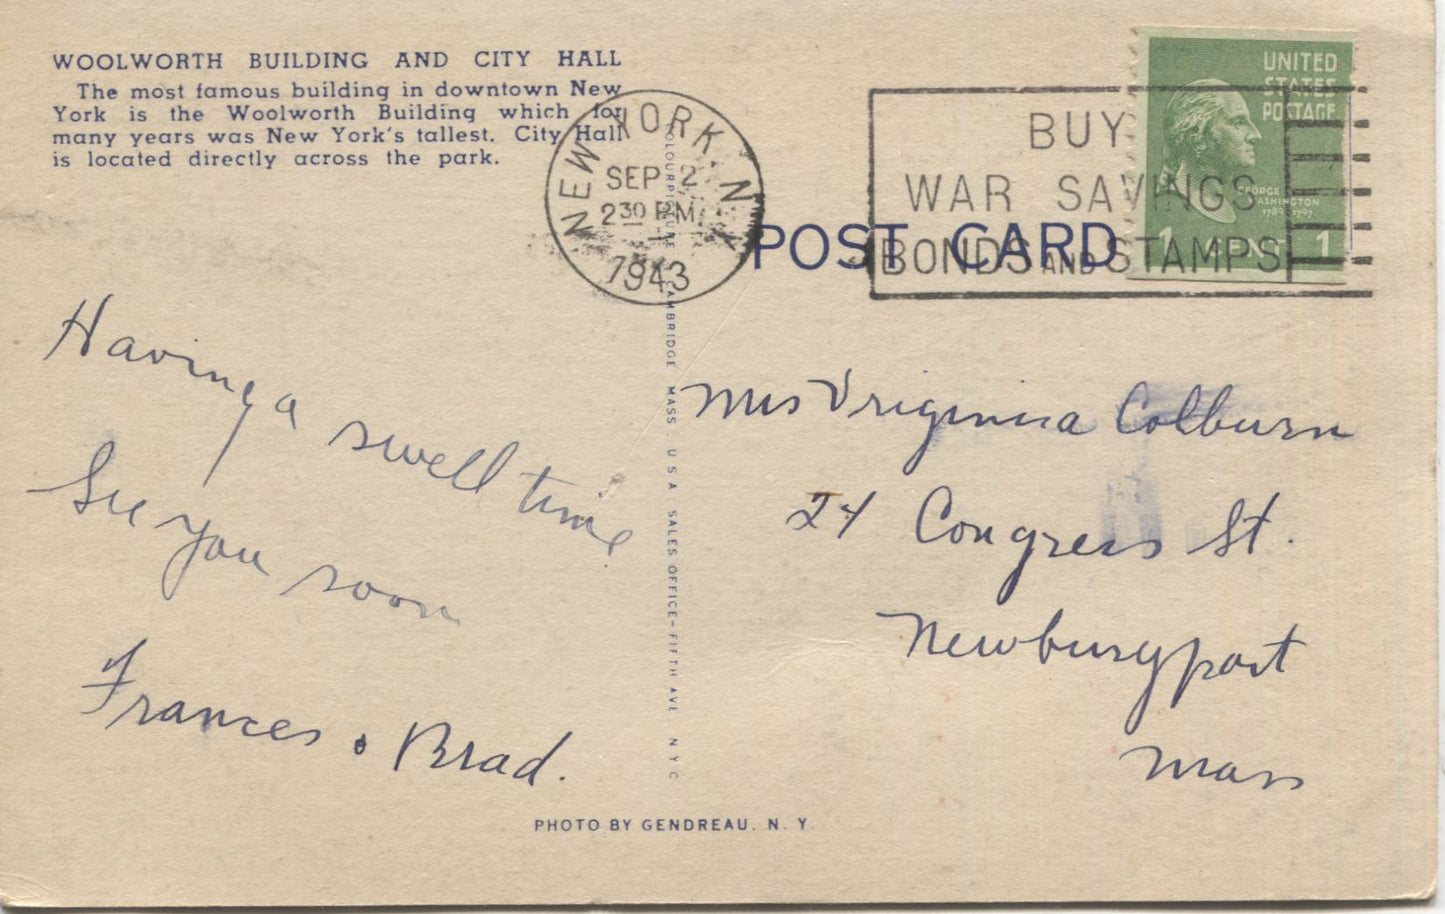 WOOLWORTH BUILDING AND CITY HALL
The most famous building in downtown New
York is the Woolworth Building which for
many years was New York's tallest. City Hall
is located directly across the park.
NEW YORK, N.Y.
SEP 2
2 30 PM
1943
BUY
WAR SAVINGS
BONDS AND STAMPS
UNITED
STATES
POSTAGE
GEORGE
WASHINGTON
1789-1797
1 CENT 1
POST CARD
Having a swell time
See you soon
Frances & Brad.
CAMBRIDGE MASS. U.S.A. SALES OFFICE-FIFTH AVE N Y C
Mrs Virginia Colburn
24 Congress St.
Newburyport
Mass
PHOTO BY GENDREAU, N. Y.